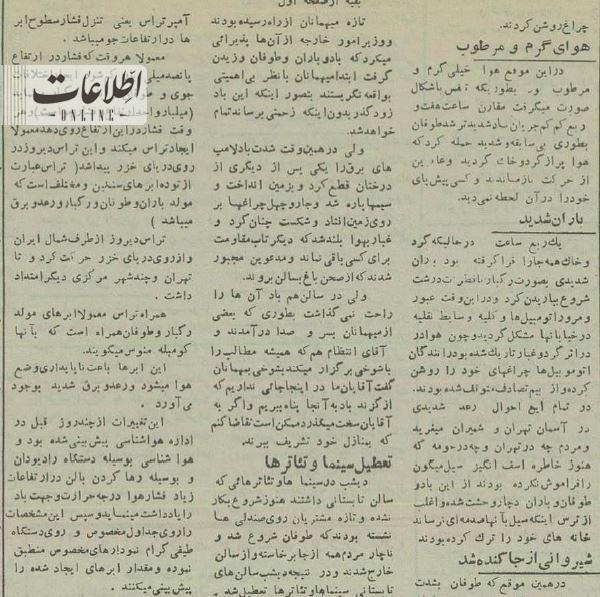 بقیه از صفحه اول
چراغ روشن کردند.
هوای گرم و مرطوب
در این موقع هوا خیلی گرم و
مرطوب بود بطوریکه تنفس باشکال
صورت میگرفت مقارن ساعت هفت و
ربع کم کم جریان باد شدیدتر شد طوفان
بطوری بی سابقه و شدید حمله کرد که
هوا پر از گرد و خاک گردید و عابرین
از حرکت بازماندند و کسی پیش پای
خود را در آن لحظه نمی دید.
باران شدید
یک ربع ساعت در حالیکه گرد
و خاک همه جا را فرا گرفته بود باران
شدیدی بصورت رگبار با قطرات درشت
شروع بباریدن کرد و در این وقت عبور
و مرور اتومبیل ها و کلیه وسایط نقلیه
در خیابانها مشکل گردید و چون هوا در
در اثر گرد و غبار تاریک شده بود رانندگان
اتومبیل ها چراغهای خود را روشن
کرده و از بیم تصادف متوقف شده بودند.
در تمام این احوال رعد شدیدی
در آسمان تهران و شمیران میغرید
و مردم چه در تهران و چه در حومه که
هنوز خاطره اسف انگیز سیل میگون
را فراموش نکرده بودند از این باد و
طوفان و باران دچار وحشت شده و اغلب
از ترس اینکه سیل بآنها صدمه ای نرساند
خانه های خود را ترک کرده بودند
شیروانی از جا کنده شد
در همین موقع که طوفان بشدت
تازه میهمانان از راه رسیده بودند
و وزیر امور خارجه از آن ها پذیرائی
میکرد که باد و باران و طوفان وزیدن
گرفت ابتدا میهمانان با نظر بی اهمیتی
بواقعه نگریستند بتصور اینکه این باد
زود گذر بدون اینکه زحمتی برساند تمام
خواهد شد.
ولی در همین وقت شدت باد لامپ
های برق را یکی پس از دیگری از
درختان قطع کرد و بزمین انداخت و
سیمها پاره شد و جار و چهل چراغها بر
روی زمین افتاد و شکست چنان گرد و
غبار بهوا بلند شد که دیگر تاب مقاومت
برای کسی باقی نماند و مدعوین مجبور
شدند که از صحن باغ بسالن بروند.
ولی در سالن هم باد آن ها را
راحت نمی گذاشت بطوری که بعضی
از میهمانان بسر و صدا درآمدند و
آقای انتظام هم که همیشه مطالب را
باشوخی برگزار میکند بشوخی بمهمانان
گفت آقایان ما در اینجا جائی نداریم که
از گزند باد به آنجا پناه ببریم و اگر به
آقایان سخت میگذرد ممکن است تقاضا کنم
که بمنازل خود تشریف ببرند
تعطیل سینما و تئاترها
دیشب در سینما ها و تئاتر هائی که
سالن تابستانی داشتند هنوز شروع بکار
نشده و تازه مشتریان روی صندلی ها
نشسته بودند که طوفان شروع شد و
ناچار مردم همه از جا برخاسته و از سالن
خارج شدند و در نتیجه دیشب سالن های
تابستانی سینماها و تئاترها تعطیل شد.
آمپر تراس یعنی تنزل فشار سطوح ابر
ها در ارتفاعات جو میباشد.
معمولا هر وقت که فشار در ارتفاع
پانصد میلی
جوی و
(میلیبار واحد
وقت فشار در این ارتفاع روی دهد معمولا
ایجاد تراس میکند و این تراس دیروز در
روی دریای خزر پیدا شد (تراس عبارت
از توده ابرهای سنگین و مختلف است که
مولد باران و طوفان و رگبار و رعد و برق
میباشد)
تراس دیروز از طرف شمال ایران
و از روی دریای خزر حرکت کرد و تا
تهران و چند شهر مرکزی دیگر امتداد
داشت.
همراه تراس معمولا ابر های مولد
رگبار و طوفان همراه است که بآنها
کومبله منوس میگویند.
این ابر ها باعث ناپایداری وضع
هوا میشود و رعد و برق شدید بوجود
می آورد.
این تغییرات از چند روز قبل در
اداره هواشناسی پیش بینی شده بود و
هوا شناسی بوسیله دستگاه رادیودان
و بوسیله رها کردن بالن در ارتفاعات
زیاد فشار هوا درجه حرارت و جهت باد
را یادداشت مینماید و سپس این مشخصات
را روی جداول مخصوص و روی دستگاه
طیفی گرام نمودارهای مخصوص منطبق
نموده و مقدار ابرهای ایجاد شده را
پیش بینی میکنند.
اطلاعات
ONLINE